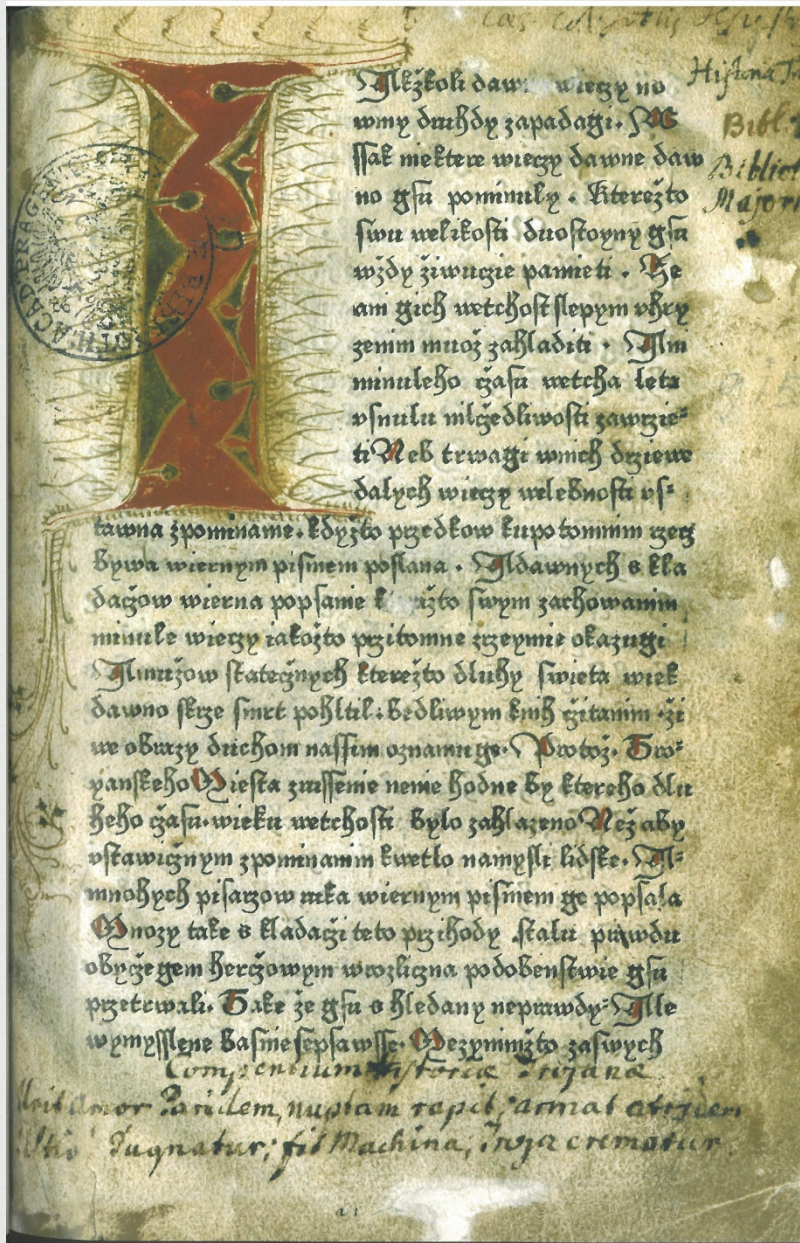 Cas
Historia
Bibl
Majori
I
Alkžkoli daw wieczy no
wmy druhdy zapadagi. W
ssak niektere wieczy dawne daw
no gsu pominuly. Kterežto
swu welikosti duostoyny gsu
wždy žiwucie pamieti. Ze
am gich wetchost slepym vhry
zenim muož zahladiti. Am
minuleho čzasu wetcha leta
vsnulu mlčedliwosti zawrzie⸗
ti Neb trwagi wnich drziewe
dalych wieczy welebnosti vs⸗
tawna zpominanie. kdyžto przedkow kupotomnim rzecz
bywa wiernym pismem poslana. A dawnych s kla
dačow wierna popsanie k ržto swym zachowanim
minule wieczy iakožto przitomne zrzeymie okazugi
A mužow statečnych kterežto dluhy swieta wiek
dawno skrze smrt pohltil. bedliwym knih čitanim ži
we obrazy duchom nassim oznamuge. Protož. Tro⸗
yanskeho Miesta zrussenie nenie hodne by ktereho dlu
heho čzasu. wieku wetchosti bylo zahlazeno Než aby
vstawičnym zpominanim kwetlo namysli lidske. A⸗
mnohych pisarzow ruka wiernym pismem ge popsala
Mnozy take s kladači teto przihody stalu prawdu
obyčegem herčowym wrozličzna podobenstwie gsu
przetrwali. Take že gsu s hledany neprawdy⸗ Alle
wymysslene basnie sepsawsse. Mezynimižto zaswych
Compendium Historiæ Trojanæ
Urit amor Paridem, nuptam rapit, armat atriden
Ultio Pugnatur, fit Machina, Troja crematur.
a 1